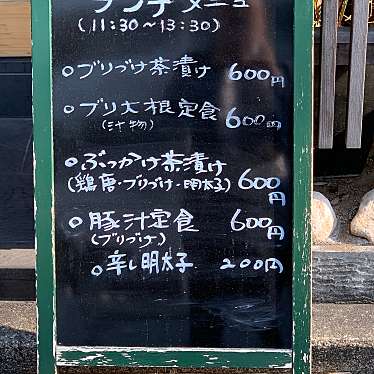 ランチメニュー
(11:30~13:30)
○ブリづけ茶漬け 600円
○ブリ大根定食 600円
(汁物)
○ぶっかけ茶漬け
(鶏唐・ブリづけ・明太子) 600円
○豚汁定食 600円
(ブリづけ)
○辛し明太子 200円